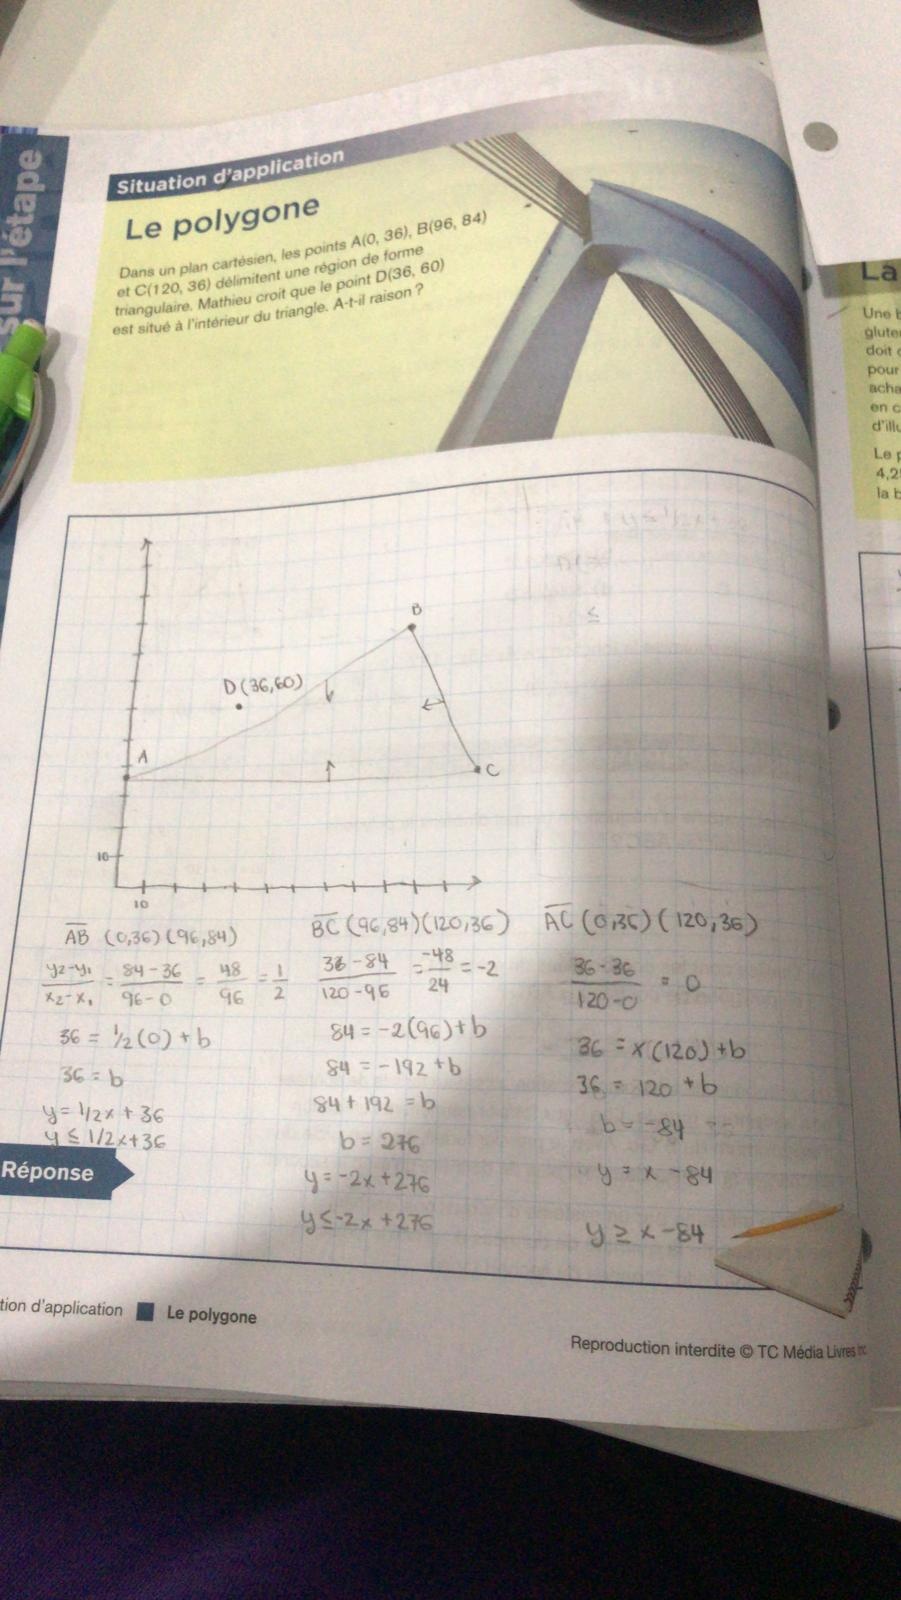 sur l'étape
Situation d'application
Le polygone
Dans un plan cartésien, les points A(0, 36), B(96, 84)
et C(120, 36) délimitent une région de forme
triangulaire. Mathieu croit que le point D(36, 60)
est situé à l'intérieur du triangle. A-t-il raison ?
La
Une b
glute
doit
pour
acha
en c
d'illu
Le p
4,2
la b
B
D(36,60)
A
C
10
10
AB (0,36) (96,84)
y₂-y₁/x₂-x₁ = 84-36/96-0 = 48/96 = 1/2
36 = 1/2(0) + b
36 = b
y = 1/2x + 36
y ≤ 1/2x+36
BC (96,84)(120,36)
36-84/120-96 = -48/24 = -2
84 = -2(96)+b
84 = -192 +b
84+192 = b
b = 276
y = -2x+276
y ≤ -2x +276
AC (0,36) (120,36)
36-36/120-0 = 0
36 = x(120)+b
36 = 120 +b
b = -84
y = x -84
y ≥ x -84
Réponse
tion d'application ■ Le polygone
Reproduction interdite © TC Média Livres Inc